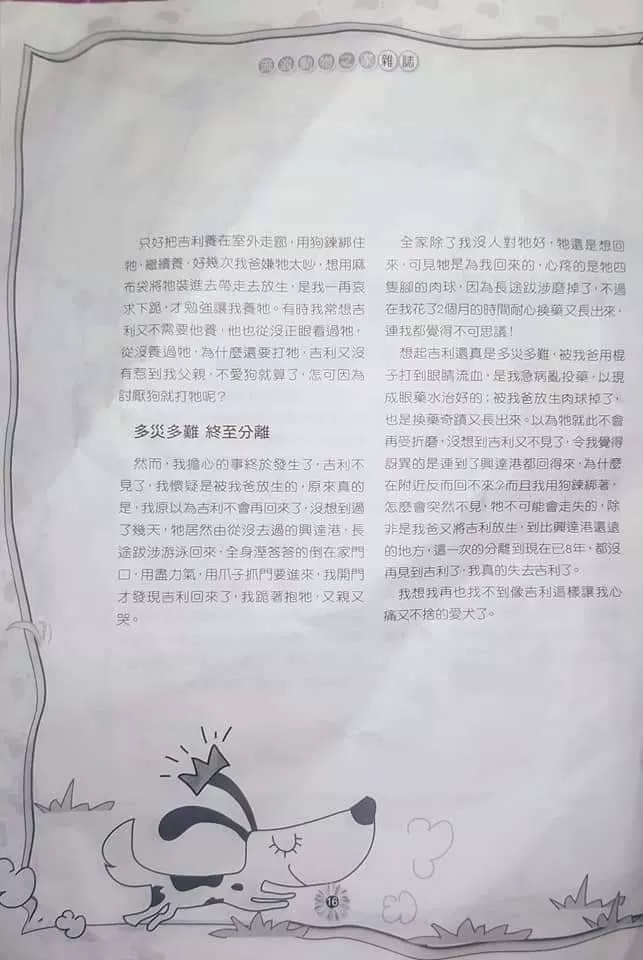 流浪動物之家雜誌
只好把吉利養在室外走廊，用狗鍊綁住
牠，繼續養，好幾次我爸嫌牠太吵，想用麻
布袋將牠裝進去帶走去放生，是我一再哀
求下跪，才勉強讓我養牠。有時我常想吉
利又不需要他養，他也從沒正眼看過牠，
從沒養過牠，為什麼還要打牠，吉利又沒
有惹到我父親，不愛狗就算了，怎可因為
討厭狗就打牠呢？
多災多難 終至分離
然而，我擔心的事終於發生了，吉利不
見了，我懷疑是被我爸放生的，原來真的
是，我原以為吉利不會再回來了，沒想到過
了幾天，牠居然由從沒去過的興達港，長
途跋涉游泳回來，全身溼答答的倒在家門
口，用盡力氣，用爪子抓門要進來，我開門
才發現吉利回來了，我跪著抱牠，又親又
哭。
全家除了我沒人對牠好，牠還是想回
來，可見牠是為我回來的，心疼的是牠四
隻腳的肉球，因為長途跋涉磨掉了，不過
在我花了2個月的時間耐心換藥又長出來，
連我都覺得不可思議！
想起吉利還真是多災多難，被我爸用棍
子打到眼睛流血，是我急病亂投藥，以現
成眼藥水治好的；被我爸放生肉球掉了，
也是換藥奇蹟又長出來。以為牠就此不會
再受折磨，沒想到吉利又不見了，令我覺得
訝異的是連到了興達港都回得來，為什麼
在附近反而回不來？而且我用狗鍊綁著，
怎麼會突然不見，牠不可能會走失的，除
非是我爸又將吉利放生，到比興達港還遠
的地方，這一次的分離到現在已8年，都沒
再見到吉利了，我真的失去吉利了。
我想我再也找不到像吉利這樣讓我心
痛又不捨的愛犬了。
16